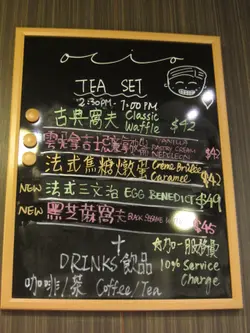 ocio
TEA SET
2:30PM - 7:00PM
古典窩夫 Classic Waffle $42
雲呢拿吉士泥 VANILLA PASTRY CREAM $42
法式焦糖燉蛋 Crème Brûlée Caramel $42
NEW 法式三文治 EGG BENEDICT $49
NEW 黑芝麻窩夫 BLACK SESAME WAFFLE $45
+
DRINKS 飲品
咖啡/茶 Coffee/Tea
☆加一服務費
10% Service Charge